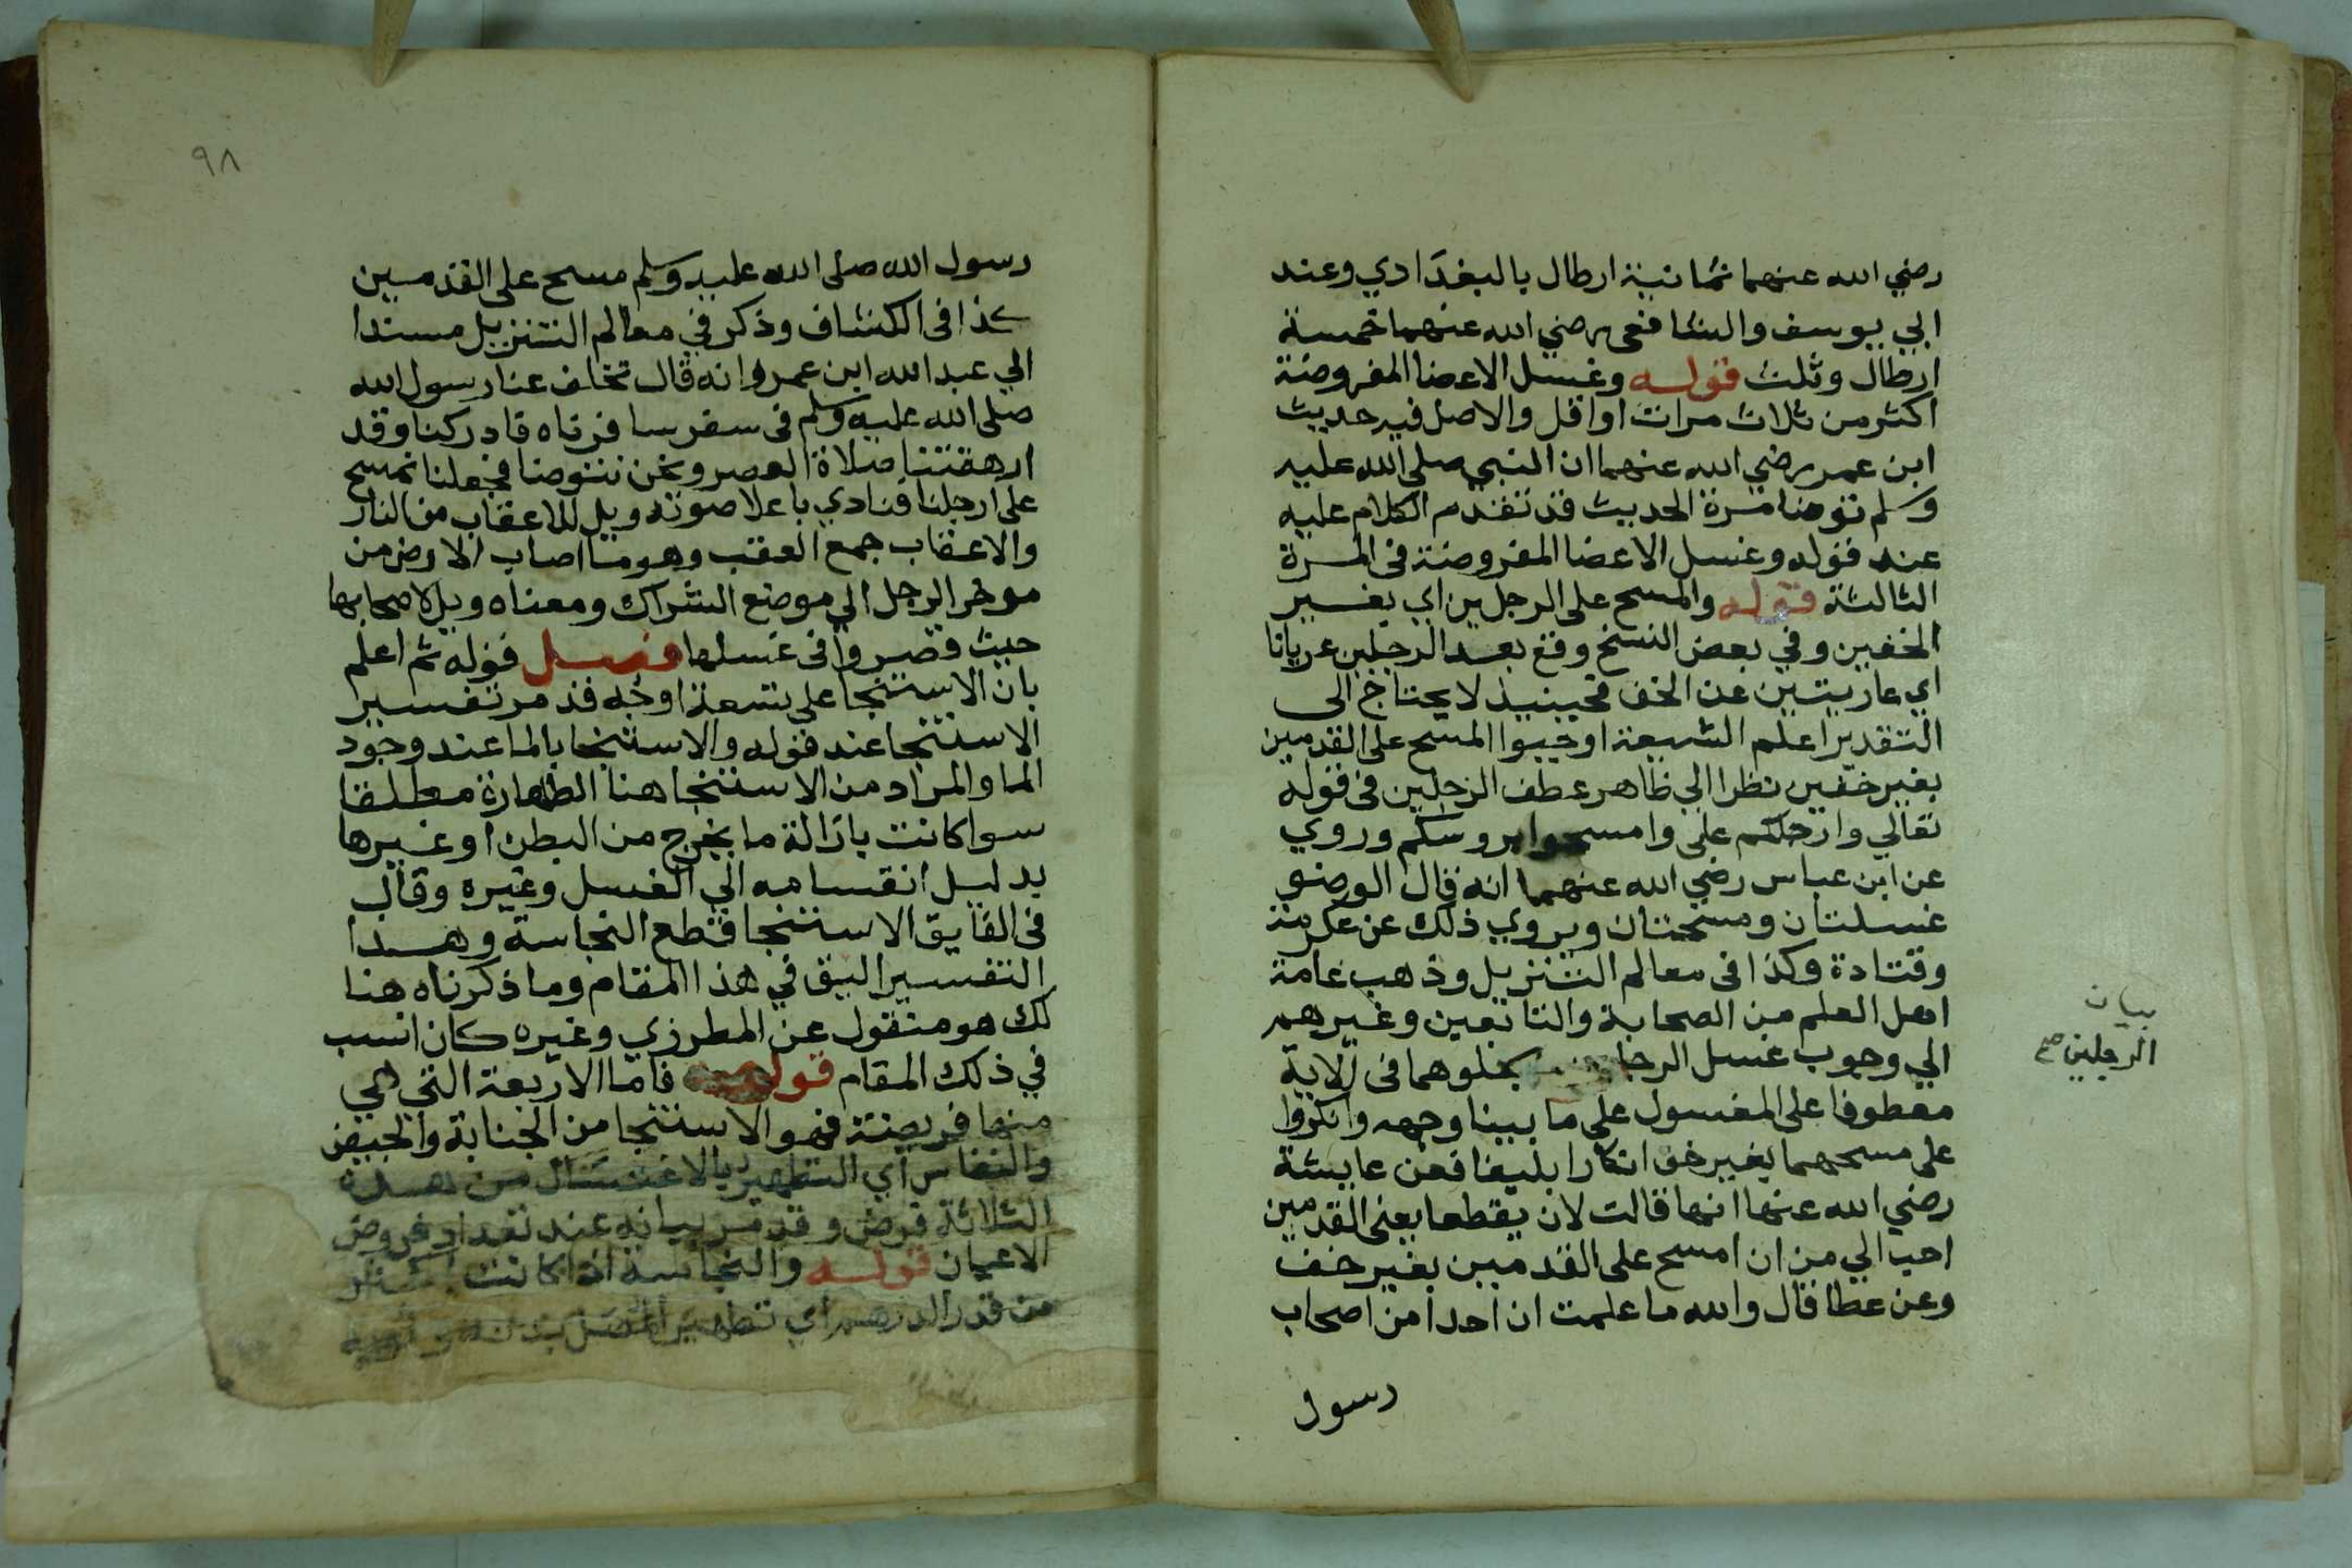 رضي الله عنهما ثمانية ارطال بالبغدادي وعند
ابي يوسف والشافعى رضي الله عنهما خمسة
ارطال وثلث قوله وغسل الاعضا المفروضة
اكثر من ثلاث مرات او اقل والاصل فيه حديث
ابن عمر رضي الله عنهما ان النبي صلى الله عليه
وسلم توضا مرة الحديث قد تقدم الكلام عليه
عند قوله وغسل الاعضا المفروضة فى المرة
الثالثة قوله والمسح على الرجلين اي بغير
الخفين وفي بعض النسخ وقع بعد الرجلين عريانا
اي عاريتين عن الخف فحينيذ لا يحتاج الى
التقدير اعلم الشيعة اوجبوا المسح على القدمين
بغير خفين نظرا الي ظاهر عطف الرجلين فى قوله
تعالي وارجلكم على وامسحوا بروسكم وروي
عن ابن عباس رضي الله عنهما انه قال الوضو
غسلتان ومسحتان ويروي ذلك عن عكرمة
وقتادة وكذا فى معالم التنزيل وذهب عامة
اهل العلم من الصحابة والتابعين وغيرهم
الي وجوب غسل الرجلين بجعلوهما فى الاية
معطوفا على المغسول على ما بينا وجهه وانكروا
على مسحهما بغير خف انكارا بليغا فعن عايشة
رضي الله عنها انها قالت لان يقطعا يعنى القدمين
احب الي من ان امسح على القدمين بغير خف
وعن عطا قال والله ما علمت ان احدا من اصحاب
رسول
بيان
الرجلين صح
٩٨
رسول الله صلى الله عليه وسلم مسح على القدمين
كذا فى الكشاف وذكر في معالم التنزيل مسندا
الي عبد الله ابن عمرو انه قال تخلف عنا رسول الله
صلى الله عليه وسلم فى سفر سافرناه فادركنا وقد
ارهقتنا صلاة العصر ونحن نتوضا فجعلنا نمسح
على ارجلنا فنادي باعلا صوته ويل للاعقاب من النار
والاعقاب جمع العقب وهو ما اصاب الارض من
موخر الرجل الي موضع الشراك ومعناه ويل لاصحابها
حيث قصروا فى غسلها فصل قوله ثم اعلم
بان الاستنجا على تسعة اوجه قد مر تفسير
الاستنجا عند قوله والاستنجا بالما عند وجود
الما والمراد من الاستنجا هنا الطهارة مطلقا
سوا كانت بازالة ما يخرج من البطن او غيرها
بدليل انقسامه الي الغسل وغيره وقال
فى الفايق الاستنجا قطع النجاسة وهدا
التفسير اليق في هذا المقام وما ذكرناه هنا
لك هو منقول عن المطرزي وغيره كان انسب
في ذلك المقام قوله فاما الاربعة التي هي
منها فريضة فهو الاستنجا من الجنابة والحيض
والنفاس اي التطهير بالاغتسال من هذه
الثلاثة فرض وقد مر بيانه عند تعداد فروض
الاعيان قوله والنجاسة اذا كانت اكثر
من قدر الدرهم اي تطهير المصلى بدنه وثوبه